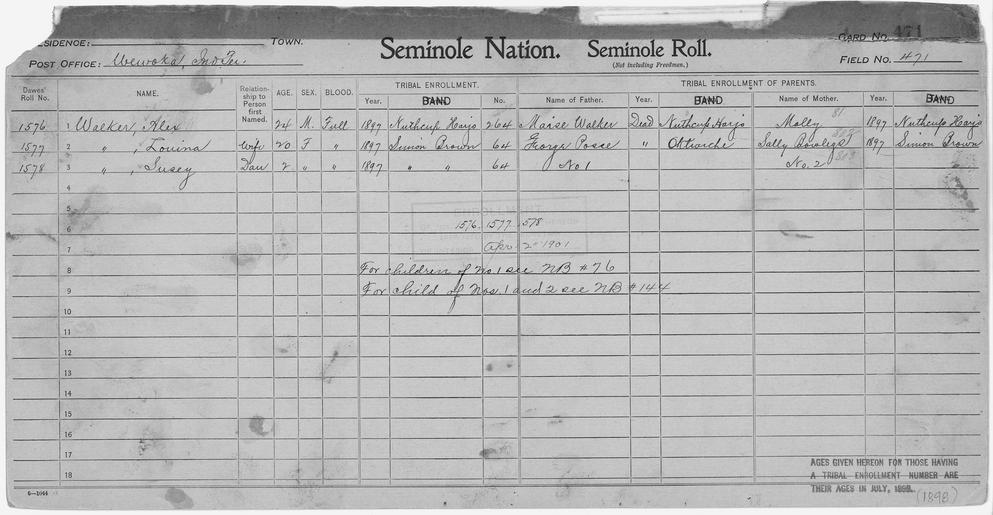 ESIDENCE: TOWN. Seminole Nation. Seminole Roll. CARD NO. 471
POST OFFICE: Wewoka, Ind. Ter. (Not including Freedmen.) FIELD NO. 471
Dawes' Roll No. NAME. Relationship to Person first Named. AGE. SEX. BLOOD. TRIBAL ENROLLMENT. TRIBAL ENROLLMENT OF PARENTS.
Year. BAND No. Name of Father. Year. BAND Name of Mother. Year. BAND
1576 1 Walker, Alex 24 M. Full 1897 Nuthcup Harjo 264 Marse Walker Dead Nuthcup Harjo Molly 81 1897 Nuthcup Harjo
1577 2 " , Louina Wife 20 F " 1897 Simon Brown 64 George Posse " Oktiarche Sally Bowlegs 1897 Simon Brown
1578 3 " , Susey Dau 2 " " 1897 " " 64 No 1 No. 2
4
5
6 1576 1577 578
7 Apr. 2 1901
8 For children of No. 1 see NB #76
9 For child of Nos. 1 and 2 see NB #144
10
11
12
13
14
15
16
17
18
AGES GIVEN HEREON FOR THOSE HAVING
A TRIBAL ENROLLMENT NUMBER ARE
THEIR AGES IN JULY, 1899. (1898)
6—1044